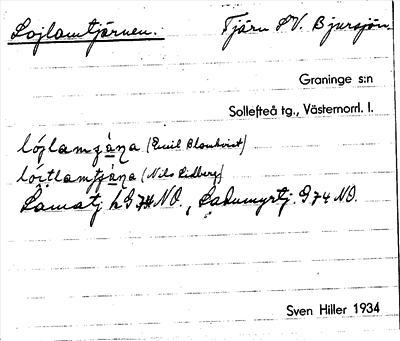 Lojlamtjärnen. Tjärn SV. Bjursjön.
Graninge s:n
Sollefteå tg., Västernorrl. l.
lójlamȷäṇa (Emil Blomkvist)
(Nils Edberg)
Lamatj h G 74 NO., Ladumyrtj. G 74 NO.
Sven Hiller 1934